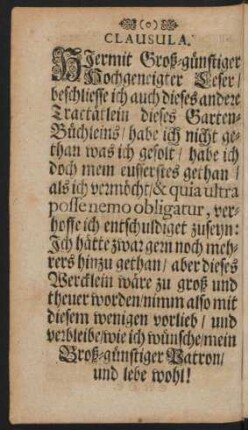 (o)
CLAUSULA.
HJermit Groß-günstiger
Hochgeneigter Leser/
beschliesse ich auch dieses andere
Tractätlein dieses Garten-
Büchleins/ habe ich nicht ge-
than was ich gesolt/ habe ich
doch mein eusserstes gethan/
als ich vermöcht/& quia ultra
posse nemo obligatur, ver-
hoffe ich entschuldiget zuseyn:
Ich hätte zwar gern noch meh-
rers hinzu gethan/ aber dieses
Wercklein wäre zu groß und
theuer worden/nimm also mit
diesem wenigen vorlieb/ und
verbleibe/wie ich wünsche/mein
Groß-günstiger Patron/
und lebe wohl!